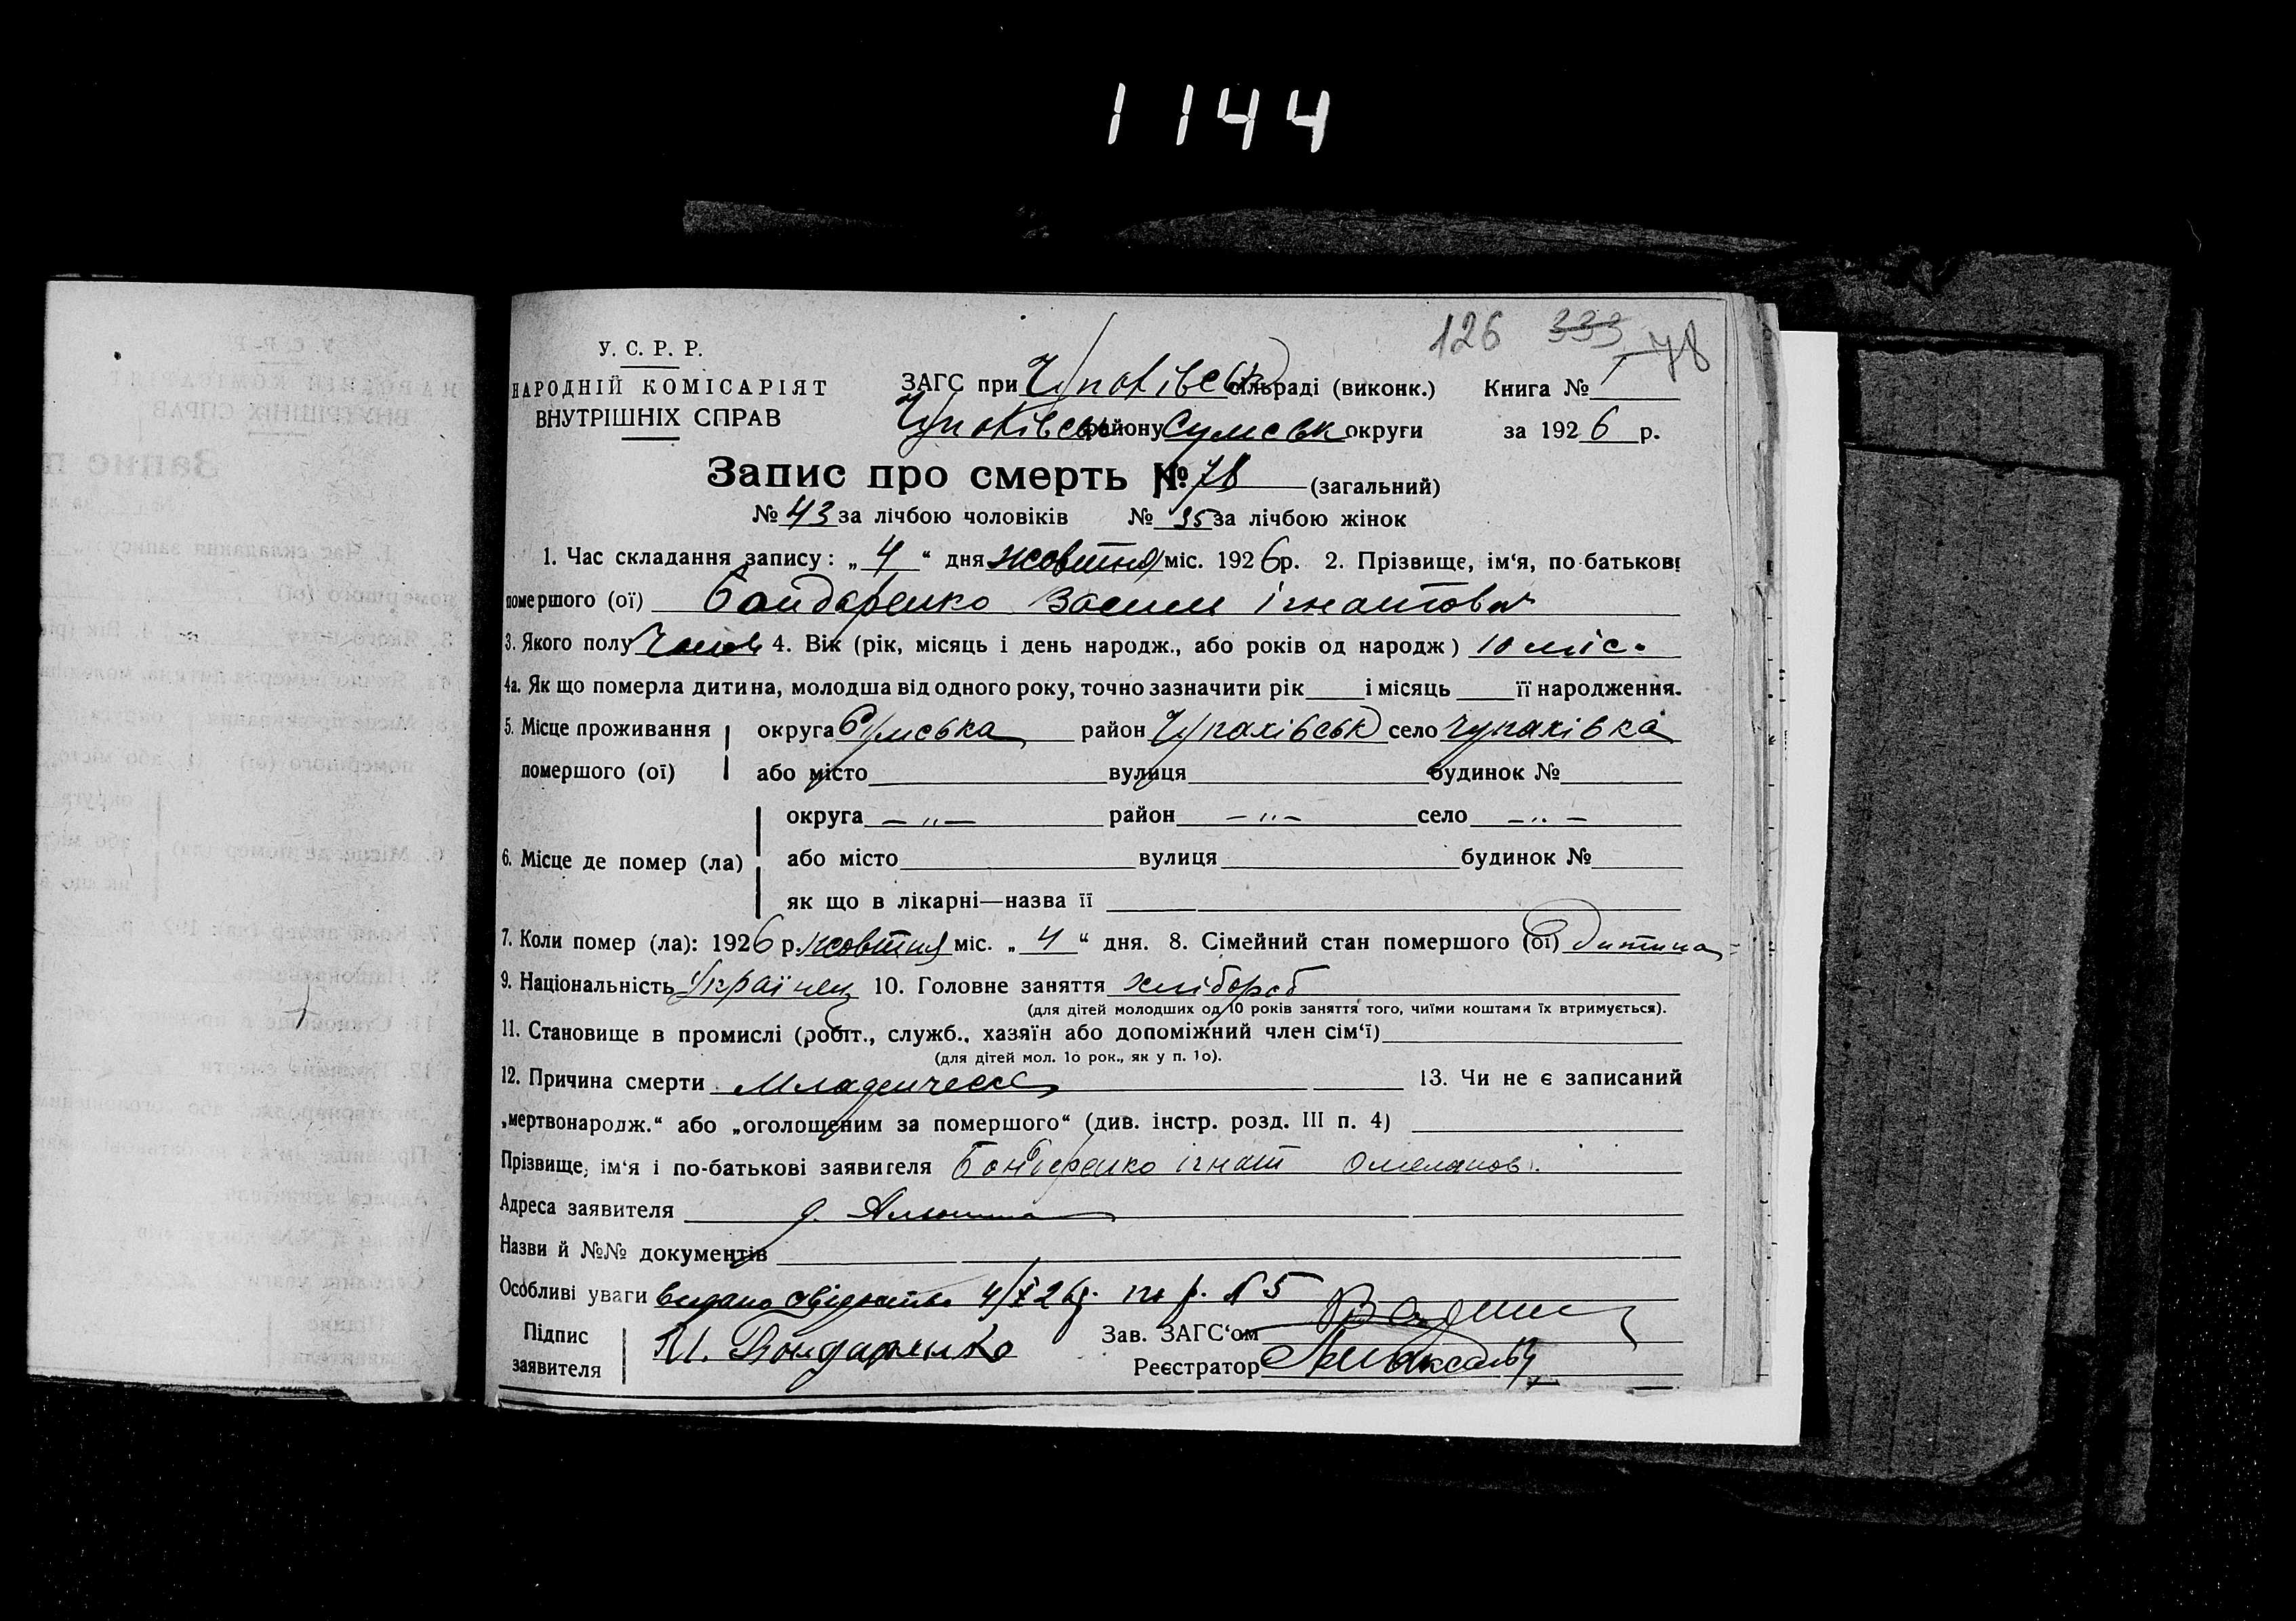 1144
126 333 78
У. С. Р. Р.
НАРОДНІЙ КОМІСАРІЯТ
ВНУТРІШНІХ СПРАВ
ЗАГС при Чупахівськ сільраді (виконк.) Книга № 1
Чупахівськ району Сумськ округи за 1926 р.
Запис про смерть № 78 (загальний)
№ 43 за лічбою чоловіків № 35 за лічбою жінок
1. Час складання запису: „ 4 “ дня жовтня міс. 1926 р. 2. Прізвище, ім‘я, по-батькові
помершого (ої) Бондаренко Василь Ігнатович
3. Якого полу Чолов 4. Вік (рік, місяць і день народж., або років од народж) 10 міс.
4а. Як що померла дитина, молодша від одного року, точно зазначити рік і місяць її народження.
5. Місце проживання помершого (ої) округа Сумська район Чупахівськ село Чупахівка
або місто вулиця будинок №
округа — „ — район — „ — село — „ —
6. Місце де помер (ла) або місто вулиця будинок №
як що в лікарні—назва її
7. Коли помер (ла): 1926 р. жовтня міс. „ 4 “ дня. 8. Сімейний стан помершого (ої) дитина
9. Національність Українец 10. Головне заняття хлібороб
(для дітей молодших од 10 років заняття того, чиїми коштами їх втримується).
11. Становище в промислі (робіт., служб., хазяїн або допоміжний член сім‘ї)
(для дітей мол. 1о рок., як у п. 1о).
12. Причина смерти Младенческа 13. Чи не є записаний
„мертвонародж.“ або „оголошеним за помершого“ (див. інстр. розд. III п. 4)
Прізвище, ім‘я і по-батькові заявителя Бондаренко Ігнат Омелянов.
Адреса заявителя
Назви й №№ документів
Особливі уваги видано свідоцтво 4/X 26 р. по р. № 5
Підпис заявителя И. Бондаренко Зав. ЗАГС‘ом
Реєстратор